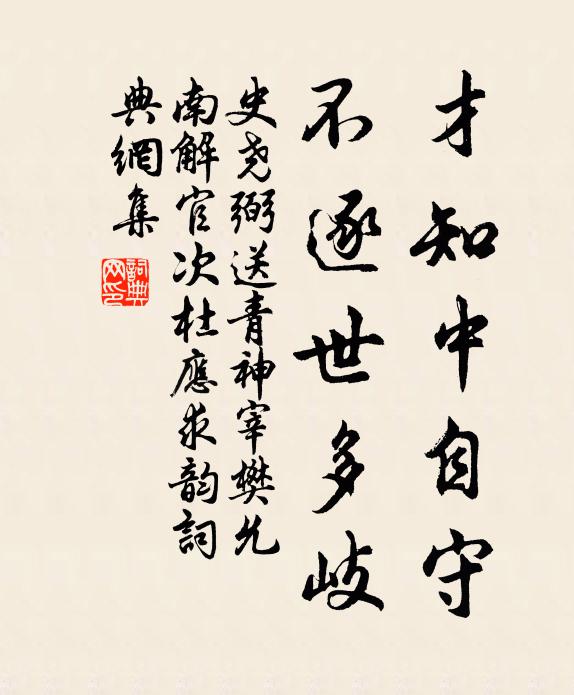 才知中自守
不逐世多岐
史尧弼送青神宰樊允
南解官次杜應求韵詞
典網集
詞典網印